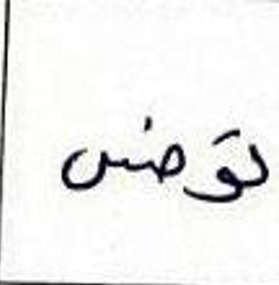 توضس